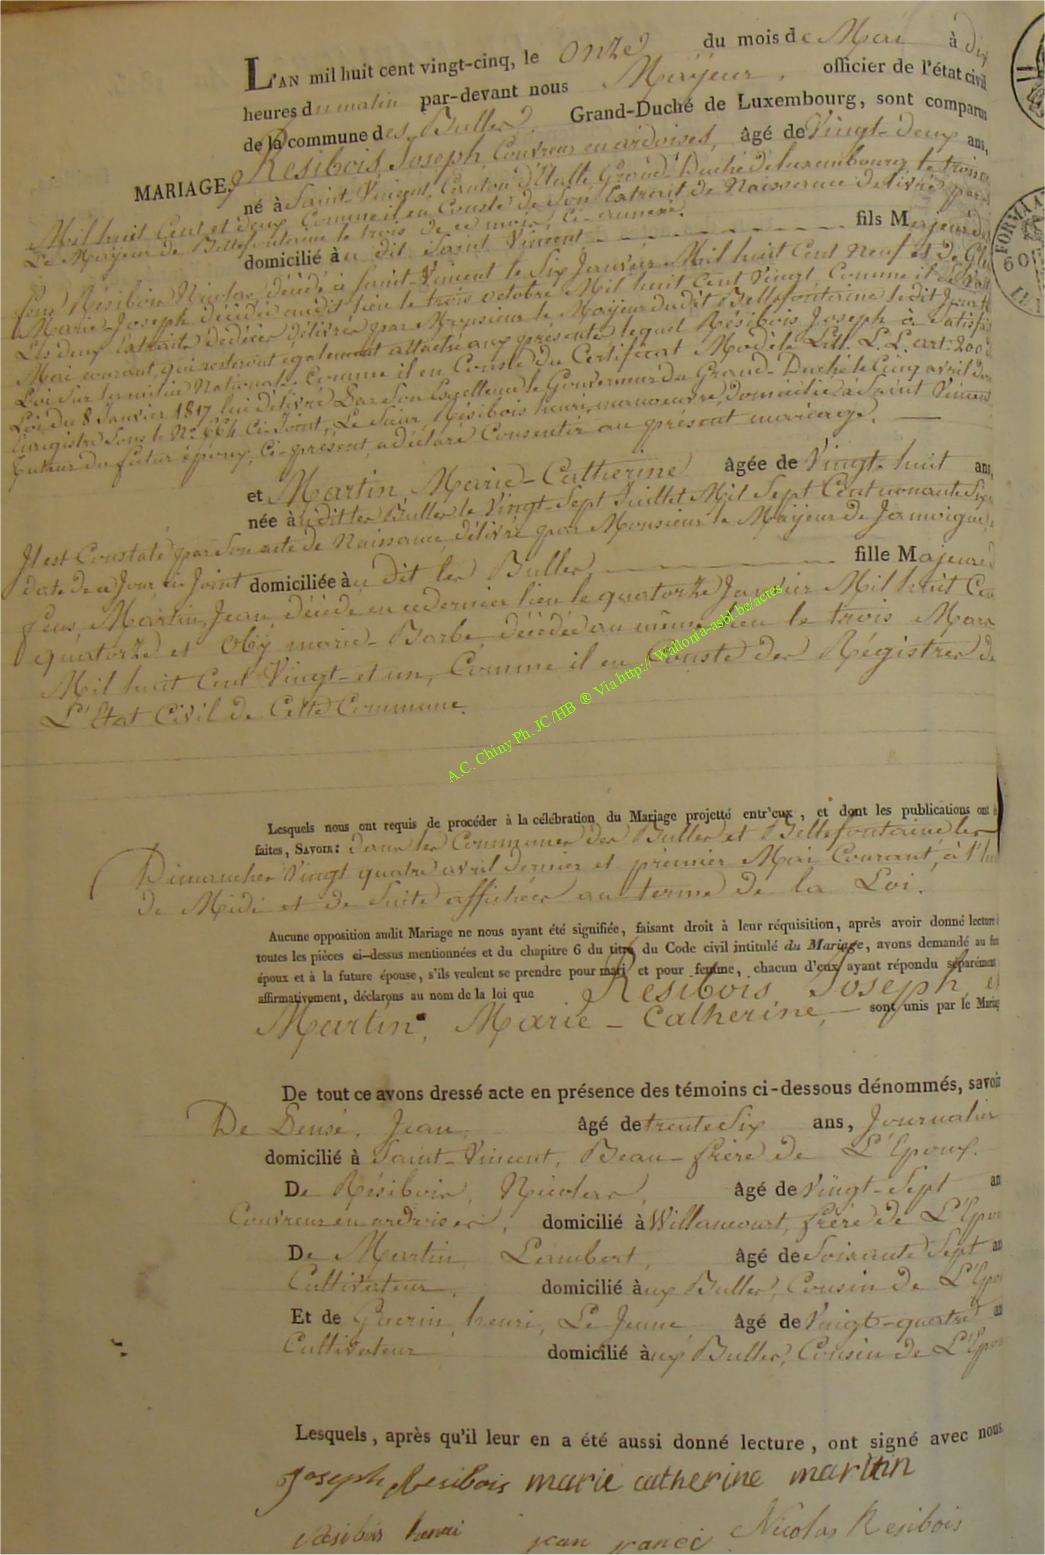 L'AN mil huit cent vingt-cinq, le onze du mois de Mai à dix
heures du matin par-devant nous Maÿeur, officier de l'état civil
de la commune des Bulles Grand-Duché de Luxembourg, sont comparus
MARIAGE. Résibois, Joseph, Couvreur en ardoises, âgé de Vingt-deux ans,
né à Saint Vincent, Canton d'Etalle Grand-Duché de Luxembourg le trois
Mil huit Cent et deux Comme il en Conste de Son Extrait de Naissance délivré par
Le Maÿeur de Bellefontaine le trois de ce mois, Ci-annexé.
domicilié à u dit Saint Vincent fils Majeur de
feus Résibois Nicolas décédé à Saint-Vincent le Six Janvier Mil huit Cent Neuf et de
Marie-Joseph décédée audit lieu le trois octobre Mil huit Cent Vingt, Comme il
Les deux Extraits de décès délivrés par Monsieur le Maÿeur dudit Bellefontaine ledit Jour
Mai courant, qui resteront également attachés aux présentes lequel Résibois Joseph à Satisfait
Loi Sur la milice Nationale Comme il en Conste du Certificat Modèle Litt. L.L. art. 200
Loi du 8 Janvier 1817 lui délivré Par Son Excellence le Gouverneur du Grand-Duché le Cinq avril
Enregistré Sous le N° 664 Ci-Joint, Le Sieur Résibois henri, manoeuvre, Domicilié à Saint Vincent
tuteur du futur époux, Ci-présent, a déclaré Consentir au présent mariage.
et Martin, Marie-Catherine âgée de Vingt-huit ans,
née à udit les Bulles le Vingt-Sept Juillet Mil Sept Cent nonante Six
Il est Constaté par Son acte de Naissance délivré par Monsieur le Maÿeur de Jamoigne,
date de ce Jour, ci Joint domiciliée à u Dit les Bulles, fille Majeure
feus, Martin, Jean, décédé en ce dernier lieu le quatorze Janvier Mil huit Cen
quatorze et Obÿ marie-Barbe décédée au même lieu le trois Mars
Mil huit Cent Vingt-et un, Comme il en Conste des Régistres de
L'Etat Civil de Cette Commune.
A.C. Chiny Ph. JC /HB ® Via http://Wallonia-asbl.be/actes
Lesquels nous ont requis de procéder à la célébration du Mariage projetté entr'eux, et dont les publications ont
faites, SAVOIR: dans les Communes des Bulles et Bellefontaine les
Dimanches Vingt quatre avril dernier et premier Mai Courant, à l'h
de Midi et de Suite affichées au terme de la Loi.
Aucune opposition audit Mariage ne nous ayant été signifiée, faisant droit à leur réquisition, après avoir donné lecture
toutes les pièces ci-dessus mentionnées et du chapitre 6 du titre du Code civil intitulé du Mariage, avons demandé au fut
époux et à la future épouse, s'ils veulent se prendre pour mari et pour femme, chacun d'eux ayant répondu séparément
affirmativement, déclarons au nom de la loi que Résibois, Joseph, et
Martin, Marie-Catherine, sont unis par le Mariag
De tout ce avons dressé acte en présence des témoins ci-dessous dénommés, savoir
De Jean, âgé de trente Six ans, Journalier
domicilié à Saint-Vincent, Beau-frère de L'Epoux.
De Résibois, Nicolas, âgé de Vingt-Sept an
Couvreur en ardoises, domicilié à Willancourt, frère de L'Epou
De Martin, Lambert, âgé de Soixante Sept an
Cultivateur, domicilié à ux Bulles, Cousin de L'Epou
Et de Guerin, henri, Le Jeune âgé de Vingt-quatre an
Cultivateur domicilié à ux Bulles, Cousin de L'Epou
Lesquels, après qu'il leur en a été aussi donné lecture, ont signé avec nous
Joseph Resibois marie catherine martin
résibois henri jean Nicolas Resibois